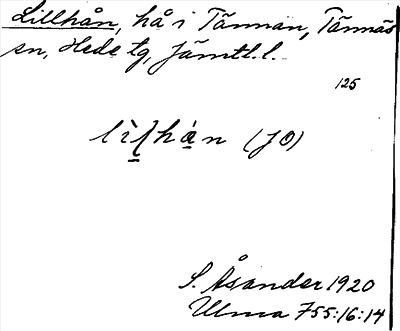 Lillhån, hå i Tännan, Tännäs
sn, Hede tg, Jämtl. l.
125
lìl̠hà̠n (JO)
S. Åsander 1920
Ulma 755:16:14